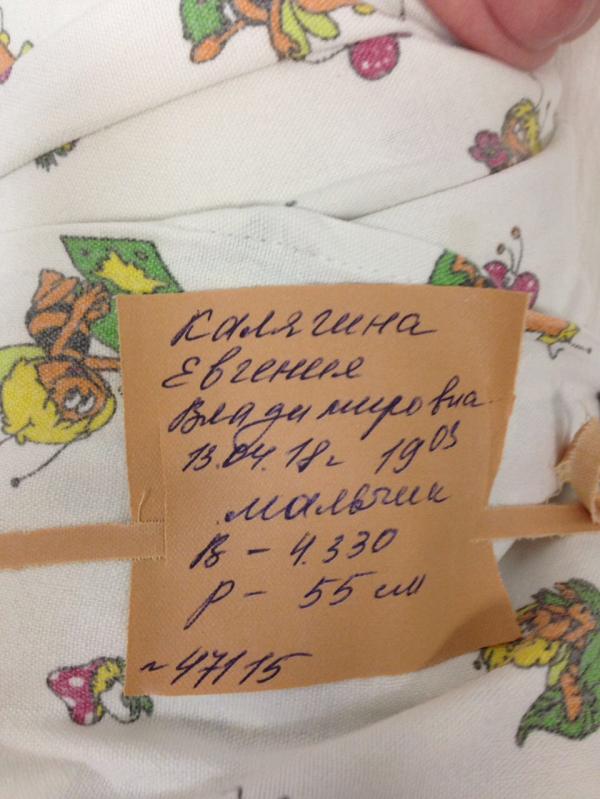 Калягина
Евгения
Владимировна
13.04.18г 19 03
мальчик
В - 4.330
р - 55 см
~47115